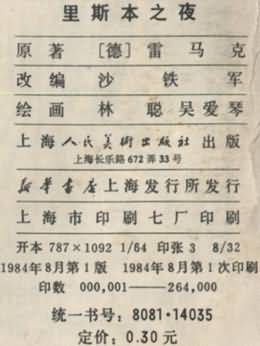 里斯本之夜
原著 [德] 雷马克
改编 沙铁军
绘画 林聪 吴爱琴
上海人民美術出版社出版
上海长乐路 672 弄 33 号
新华書店上海发行所发行
上海市印刷七厂印刷
开本 787×1092 1/64 印张 3 8/32
1984年8月第1版 1984年8月第1次印刷
印数 000,001——264,000
统一书号：8081·14035
定价：0.30 元